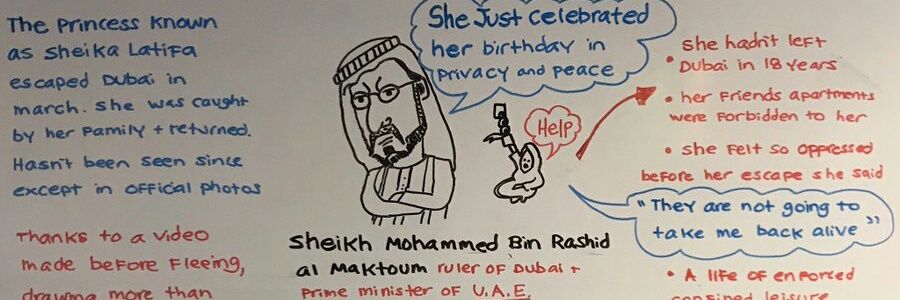 The Princess known
as Sheika Latifa
escaped Dubai in
march. She was caught
by her Family + returned.
Hasn't been seen since
except in official photos
Thanks to a video
made before Fleeing,
drawing more than
She Just celebrated
her birthday in
privacy and peace
Help
Sheikh Mohammed Bin Rashid
al Maktoum ruler of Dubai +
Prime minister of U.A.E.
she hadn't left
Dubai in 18 years
• her Friends apartments
were Forbidden to her
• she Felt so oppressed
before her escape she said
"They are not going to
take me back alive"
• A life of enforced
confined leisure